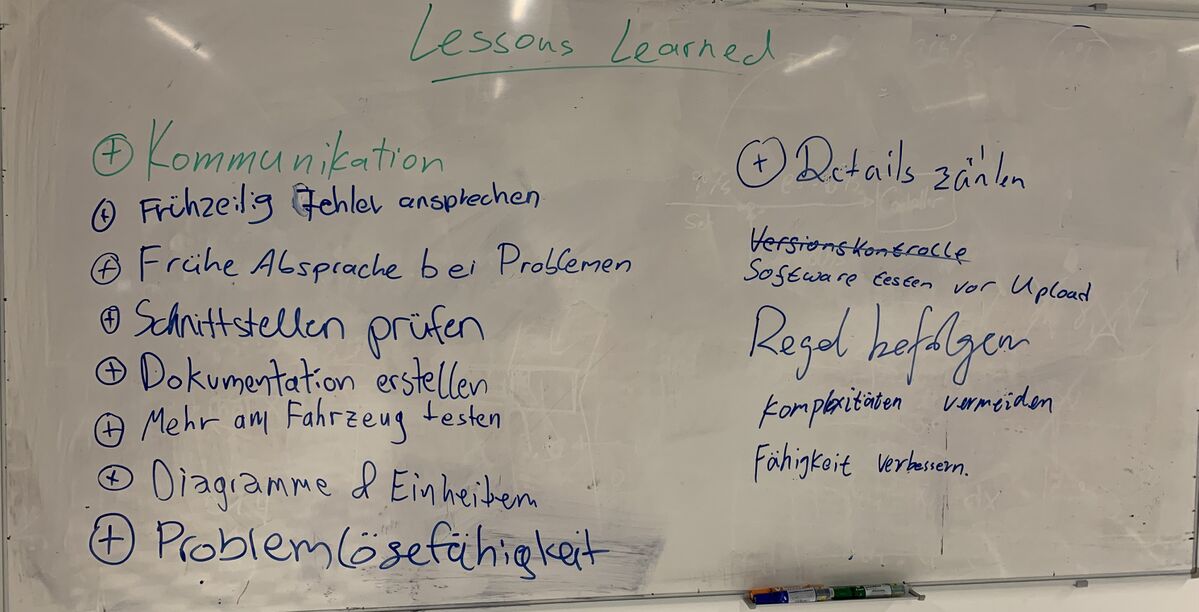 Lessons Learned
⊕ Kommunikation
⊕ Frühzeitig Fehler ansprechen
⊕ Frühe Absprache bei Problemen
⊕ Schnittstellen prüfen
⊕ Dokumentation erstellen
⊕ Mehr am Fahrzeug testen
⊕ Diagramme & Einheiten
⊕ Problemlösefähigkeit
⊕ Details zählen
Versionskontrolle
Software testen vor Upload
Regel befolgen
Komplexitäten vermeiden
Fähigkeit verbessern.